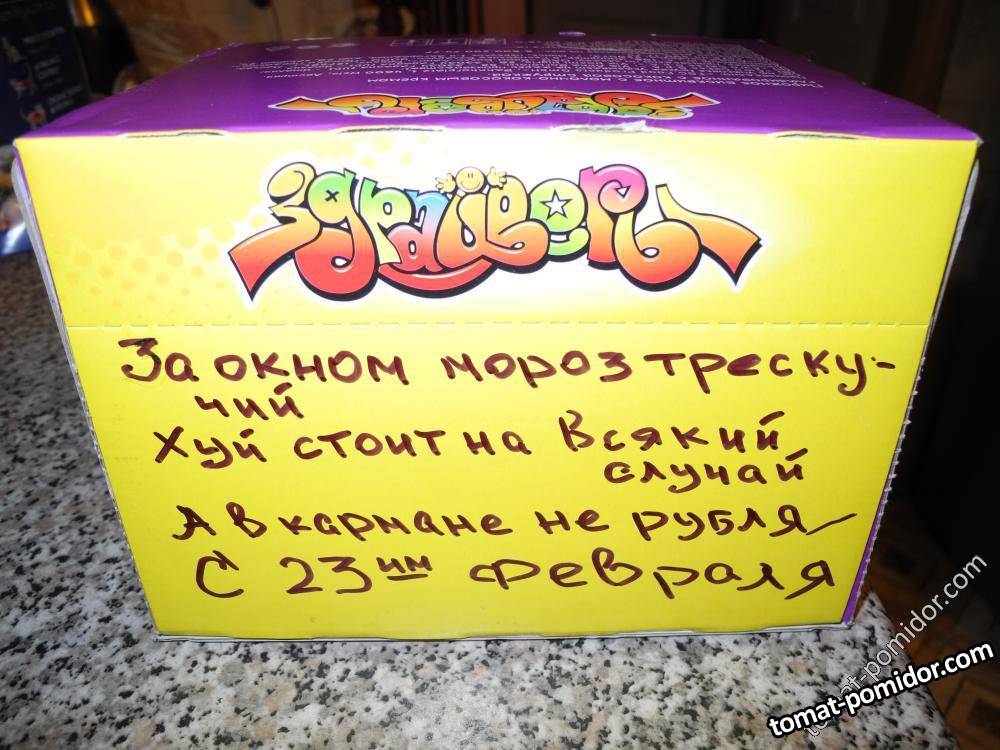 Здрайверы
За окном мороз треску-
чий
Хуй стоит на всякий
случай
А в кармане не рубля
С 23им февраля
tomat-pomidor.com
tomat-pomidor.com